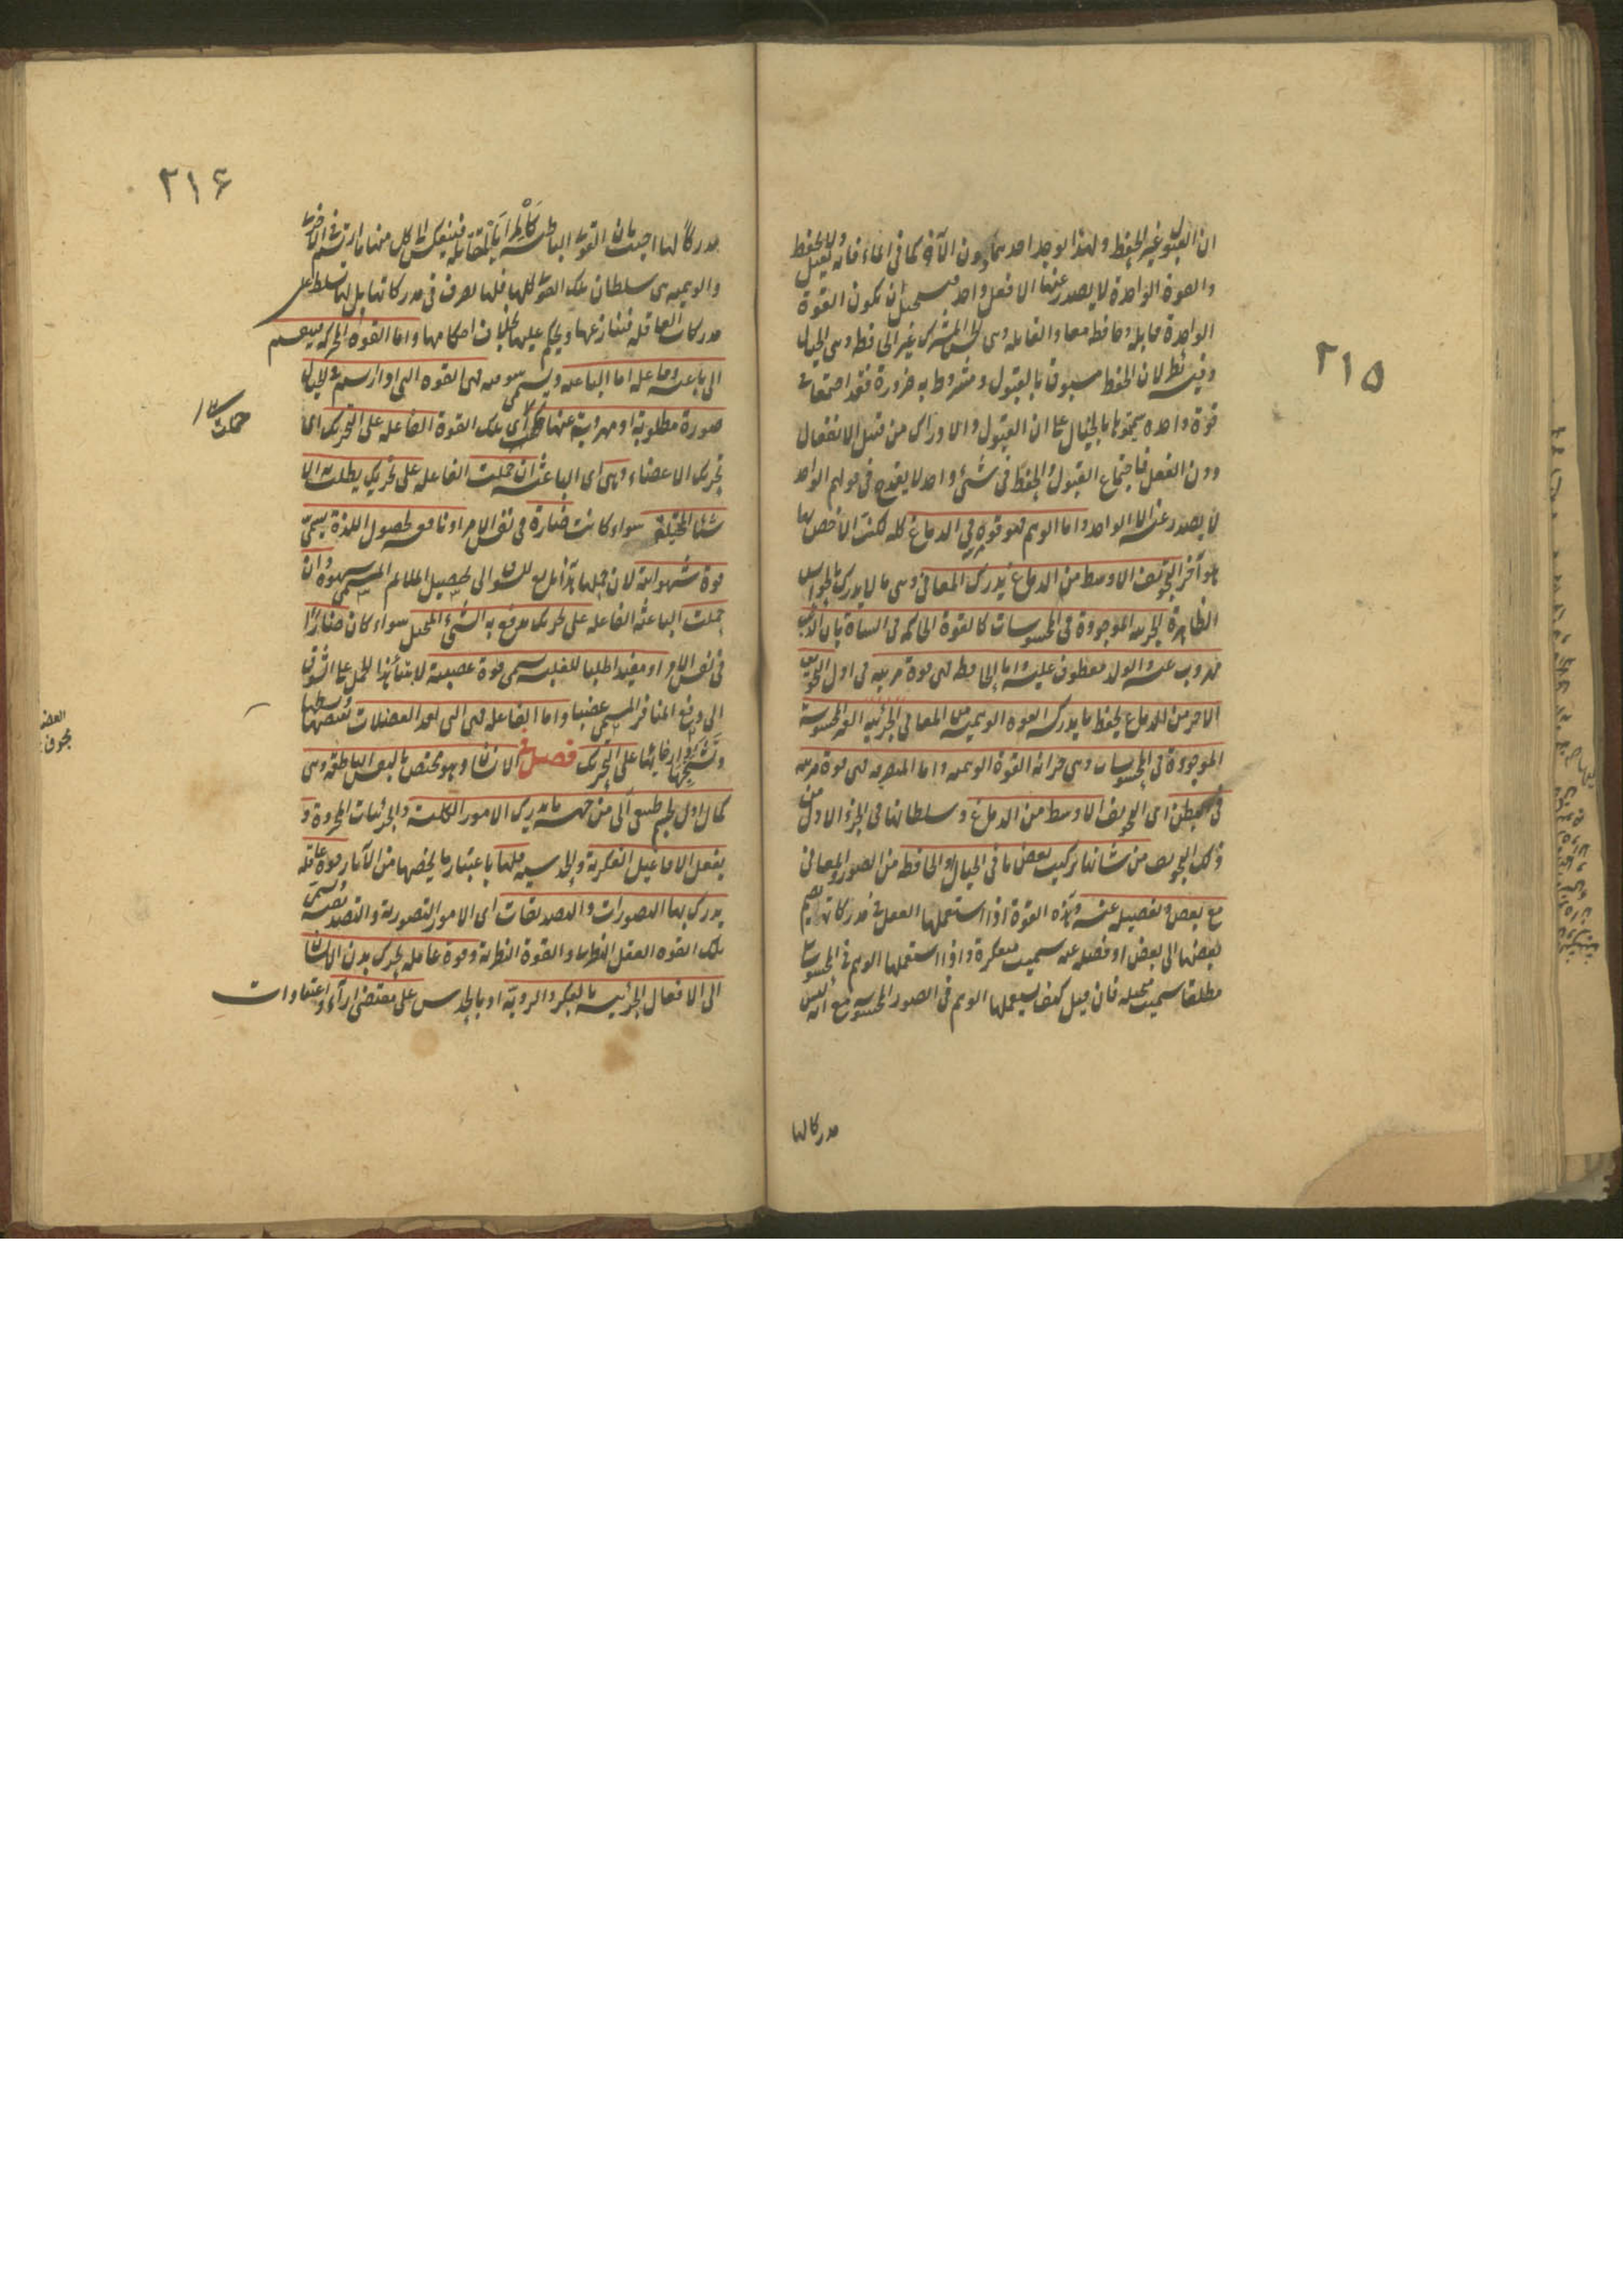 ٢١٥
ان القبول غير الحفظ ولهذا يوجد احدهما دون الآخر كما في الماء فانه يقبل ولا يحفظ
والقوة الواحدة لا يصدر عنها الا فعل واحد فيستحيل ان يكون القوة
الواحدة قابلة وحافظة معا والقابلة وهى الحس المشترك غير الحافظة وهى الخيال
وفيه نظر لان الحفظ مسبوق بالقبول ومشروط به ضرورة فقد اجتمعا في
قوة واحدة سميتموها بالخيال على ان القبول والادراك من قبيل الانفعال
دون الفعل فاجتماع القبول والحفظ في شئ واحد لا يقدح في قولهم الواحد
لا يصدر عنه الا الواحد واما الوهم فهو قوة في الدماغ كله لكن الاخص بها
هو آخر التجويف الاوسط من الدماغ يدرك المعاني وهى ما لا يدرك بالحواس
الظاهرة الجزئية الموجودة في المحسوسات كالقوة الحاكمة في الشاة بان الذئب
مهروب عنه والولد معطوف عليه واما الحافظة فهى قوة مرتبة في اول التجويف
الاخر من الدماغ يحفظ ما يدركه القوة الوهمية من المعاني الجزئية الغير المحسوسة
الموجودة في المحسوسات وهى خزانة القوة الوهمية واما المتصرفة فهى قوة مرتبة
في البطن اى التجويف الاوسط من الدماغ وسلطانها في الجزء الاول من
ذلك التجويف من شانها تركيب بعض ما في الخيال او الحافظة من الصور والمعاني
مع بعض وتفصيله عنه وهذه القوة اذا استعملها العقل في مدركاته بضم
بعضها الى بعض او فصله عنه سميت مفكرة واذا استعملها الوهم في المحسوسات
مطلقا سميت متخيلة فان قيل كيف يستعملها الوهم في الصور المحسوسة مع انه ليس
مدركا لها
٢١۶
مدركا لها اجيب بان القوى الباطنة كالمرايا المتقابلة فينعكس الى كل منها ما ارتسم في الاخرى
والوهمية هى سلطان تلك القوى كلها فلها تصرف في مدركاتها بل لها تسلط على
مدركات العاقلة فتنازعها ويحكم عليها بخلاف احكامها واما القوة المحركة فينقسم
الى باعثة وفاعلة اما الباعثة ويسمى شوقية فهى القوة التى اذا ارتسم في الخيال
صورة مطلوبة او مهروبة عنها حملت اى تلك القوة الفاعلة على التحريك اى
تحريك الاعضاء وهى اى الباعثة ان حملت الفاعلة على تحريك يطلب به الا
شئا المتخيلة سواء كانت ضارة في نفس الامر او نافعة لحصول اللذة يسمى
قوة شهوانية لان حملها هذا تابع للشوق الى تحصيل الملائم المسمى شهوة وان
حملت الباعثة الفاعلة على تحريك يدفع به الشئ المتخيل سواء كان ضارا
في نفس الامر او مفيدا طلبا للغلبة يسمى قوة غضبية لابتناء هذا الحمل على الشوق
الى دفع المنافر المسمى غضبا واما الفاعلة فهى التى تعد العضلات بقبضها وبسطها
وتشنيجها وارخائها على التحريك فصل في الانسان وهو مختص بالنفس الناطقة وهى
كمال اول لجسم طبيعى آلى من جهة ما يدرك الامور الكلية والجزئيات المجردة و
يفعل الافاعيل الفكرية والحدسية فلها باعتبار ما يخصها من الآثار قوة عاقلة
يدرك بها التصورات والتصديقات اى الامور التصورية والتصديقية وتسمى
تلك القوة العقل النظرى والقوة النظرية وقوة عاملة يحرك بدن الانسان
الى الافعال الجزئية بالفكر والروية او بالحدس على مقتضى آراء واعتقادات
حملت